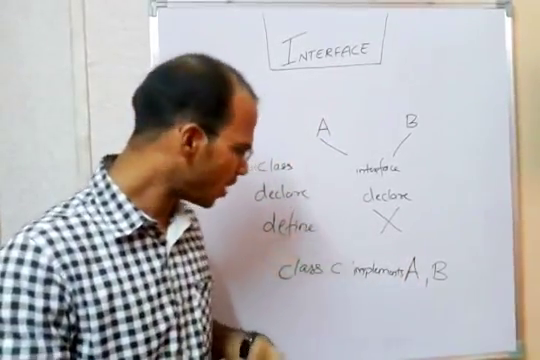 INTERFACE
A B
class interface
declare declare
define X
class C implements A, B